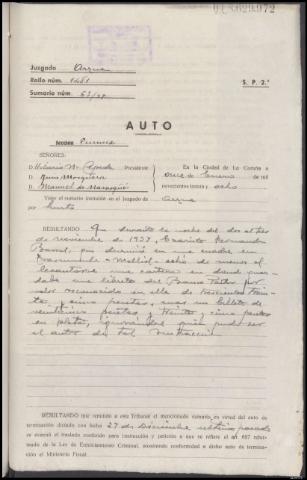 Juzgado Arzua
Rollo núm. 1481
Sumario núm. 53/37
S. P. 2.ª
AUTO
SEÑORES:
Presidente
En la Ciudad de La Coruña a
D. Manuel de
once de Enero de mil
novecientos treinta y ocho
Visto el sumario instruido en el Juzgado de Arzua
por hurto
RESULTANDO Que durante la noche del dos al tres
de noviembre de 1937,
que durmió en una cuadra de
Mellid echó de menos al
levantarse una cartera en donde guar-
daba una libreta del Banco Pastor por
valor reconocido en ella de trescientas trein-
ta y cinco pesetas, mas un billete de
veinticinco pesetas y treinta y cinco pesetas
en plata, ignorandose quien pudo ser
el autor de tal
RESULTANDO que remitido a este Tribunal el mencionado sumario en virtud del auto de
terminación dictado con fecha 27 de Diciembre último pasado
se evacuó el traslado conferido para instrucción y petición a que se refiere el art. 627 reformado
de la Ley de Enjuiciamiento Criminal, mostrando conformidad a dicho auto de terminación
el Ministerio Fiscal.